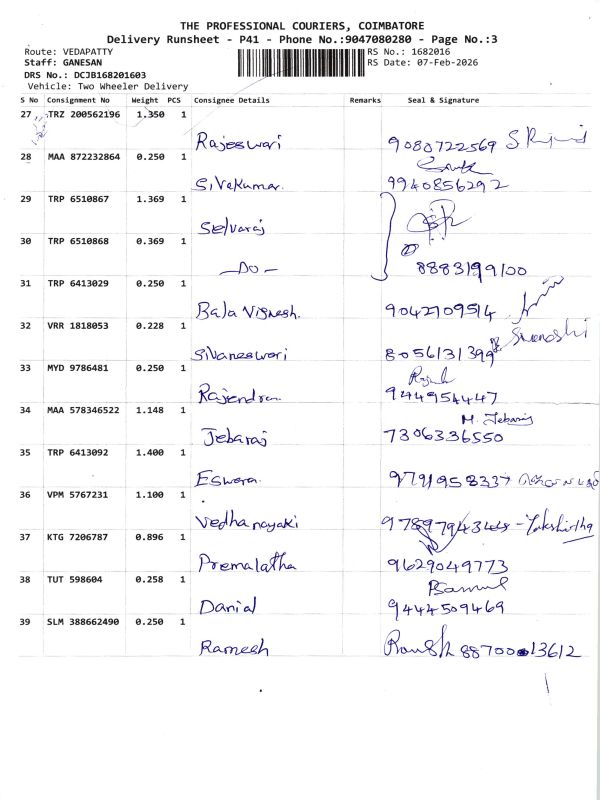 THE PROFESSIONAL COURIERS, COIMBATORE
Delivery Runsheet - P41 - Phone No.:9047080280 - Page No.:3
Route: VEDAPATTY RS No.: 1682016
Staff: GANESAN RS Date: 07-Feb-2026
DRS No.: DCJB168201603
Vehicle: Two Wheeler Delivery
S No Consignment No Weight PCS Consignee Details Remarks Seal & Signature
27 TRZ 200562196 1.350 1
Rajeswari 9080722569
28 MAA 872232864 0.250 1
Sivakumar. 9940856292
29 TRP 6510867 1.369 1
Selvaraj
30 TRP 6510868 0.369 1
—Do— 8883199100
31 TRP 6413029 0.250 1
Bala Vignesh. 9042709514
32 VRR 1818053 0.228 1
Sivaneswari 8056131399
33 MYD 9786481 0.250 1
Rajendran 9444954447
34 MAA 578346522 1.148 1
M. Jebaraj
Jebaraj 7306336550
35 TRP 6413092 1.400 1
Eswara. 9791958337
36 VPM 5767231 1.100 1
Vedhanayaki
37 KTG 7206787 0.896 1
Premalatha 9629049773
38 TUT 598604 0.258 1
Danial 9444509469
39 SLM 388662490 0.250 1
Ramesh 8870013612